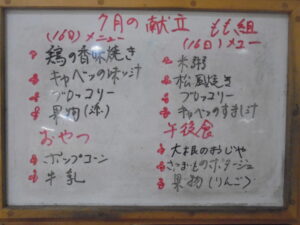 7月の献立 もも組
(16日)メニュー
鶏の香味焼き
キャベツの味噌汁
ブロッコリー
果物
おやつ
ポップコーン
牛乳
(16日)メニュー
米粥
松風焼き
ブロッコリー
キャベツのすまし汁
午後食
大根のおじや
さつまいものポタージュ
果物(りんご)